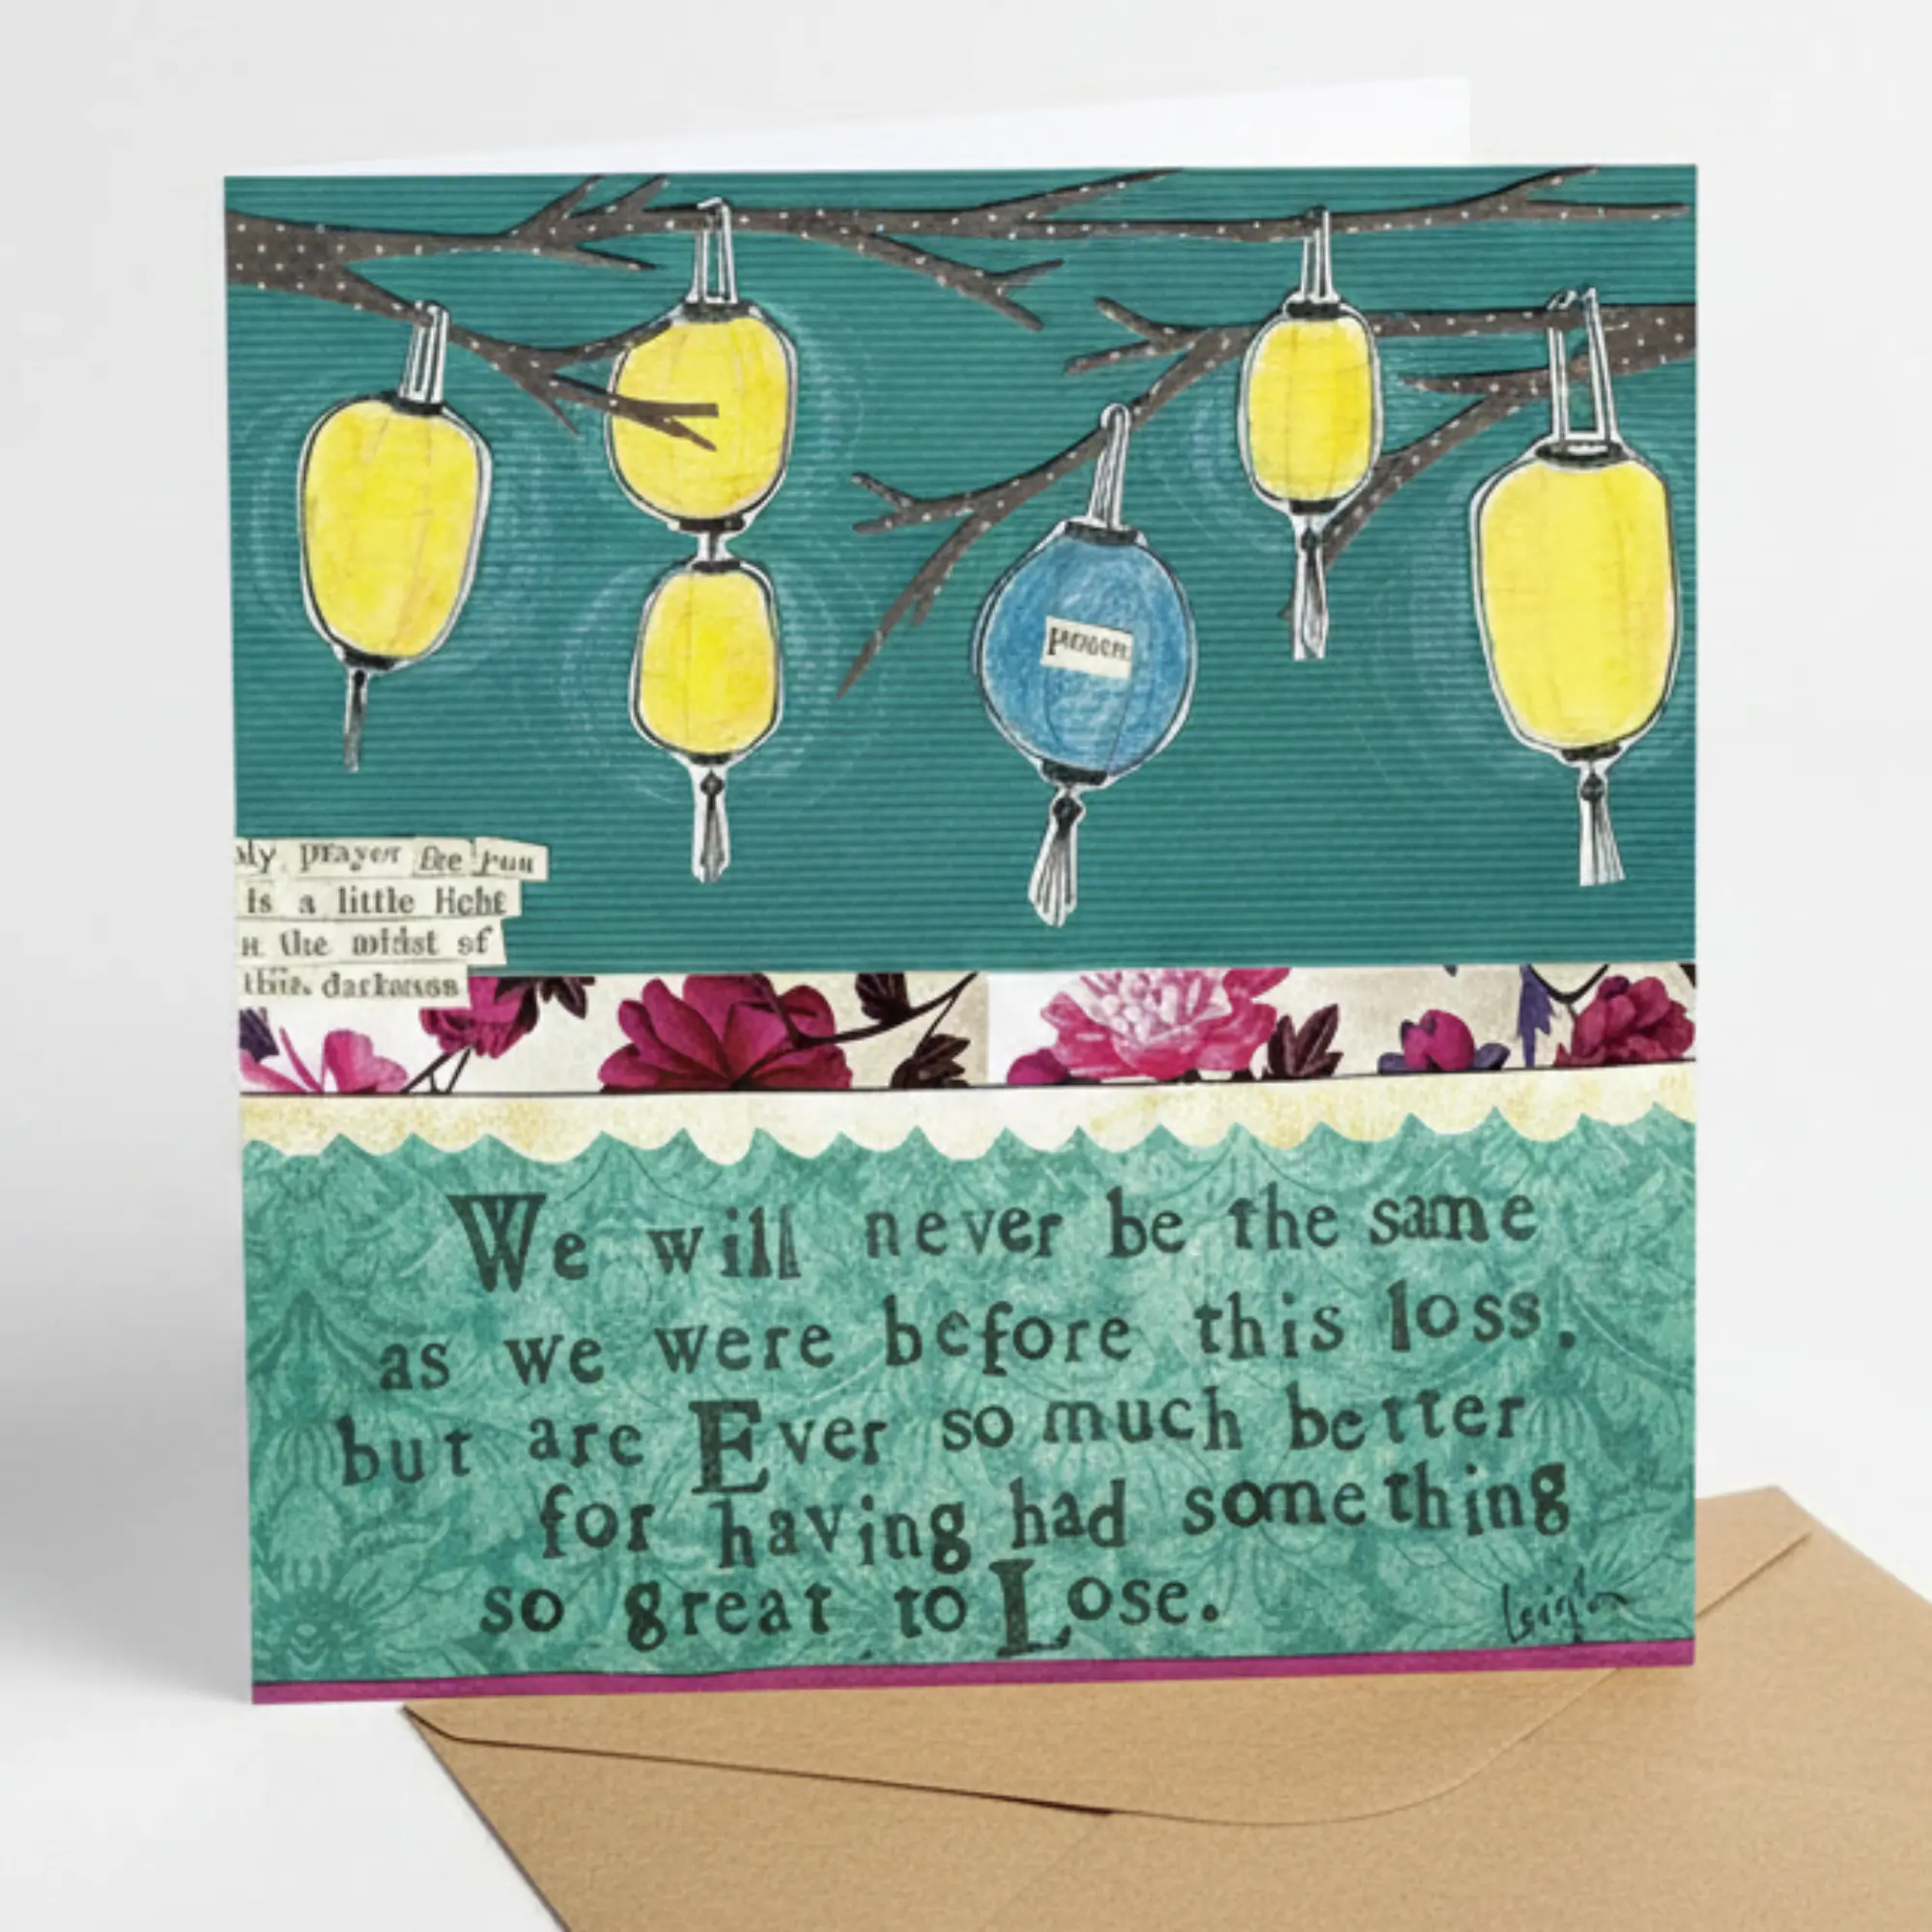 My prayer for you
is a little light
in the midst of
this darkness
We will never be the same
as we were before this loss,
but are Ever so much better
for having had something
so great to Lose.